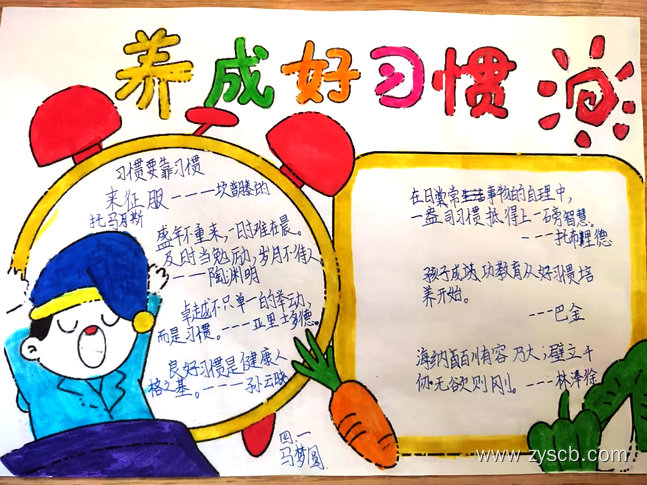 养成好习惯
习惯要靠习惯
来征服----坎部滕的
托马斯
盛年不重来,一日难在晨。
及时当勉励,岁月不待人
----陶渊明
卓越不只单一的举动,
而是习惯。----亚里士多德。
良好习惯是健康人
格之基。----孙云晓
四.一
马梦圆
在日常事物的自理中,
一盎司习惯抵得上一磅智慧。
----托布理德
孩子成功教育从好习惯培
养开始。
---巴金
海纳百川有容乃大;壁立千
仞无欲则刚。---林泽徐
www.zyscb.com